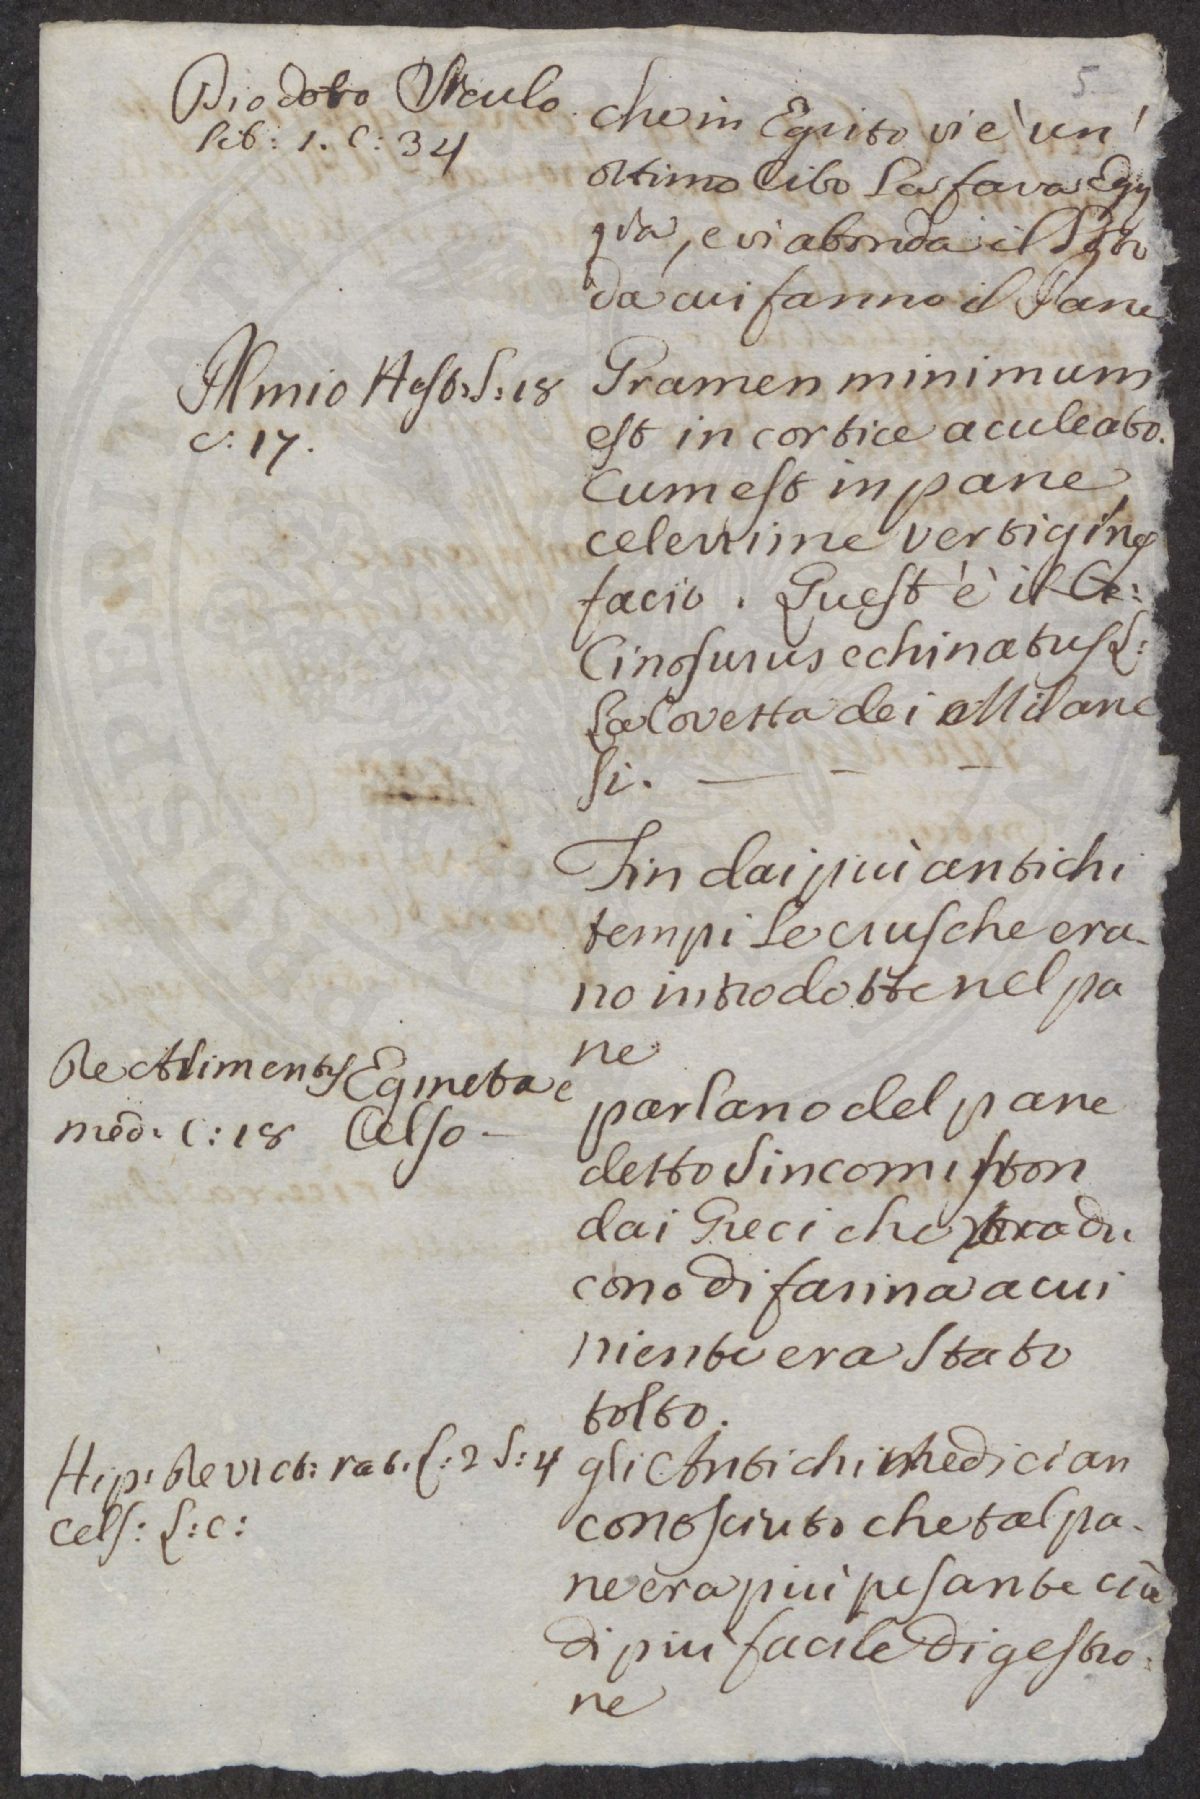 5
Diodoro Siculo
lib: 1. C: 34
che in Egitto vi e' un'
ottimo Cibo la fava Egy
zia, e vi abonda il Loto
da cui fanno il Pane
Plinio Hist: L: 18
c: 17.
Gramen minimum
est in cortice aculeato.
Cum est in pane
celerrime vertigines
facit. Quest'è il
Cinosurus echinatus L:
La Covetta dei Milane
si. — — —
Fin dai più antichi
tempi le crusche era-
no introdotte nel pa
ne
De Alimentis Egineta e
med. C: 18 Celso —
parlano del pane
detto Sincomiston
dai Greci che tradu
cono di farina a cui
niente era stato
tolto.
Hip: de vict: rat. L: 2 S: 4
Cels: L: c:
gli Antichi Medici an
conosciuto che tal pa-
ne era più pesante
di più facile digestio-
ne